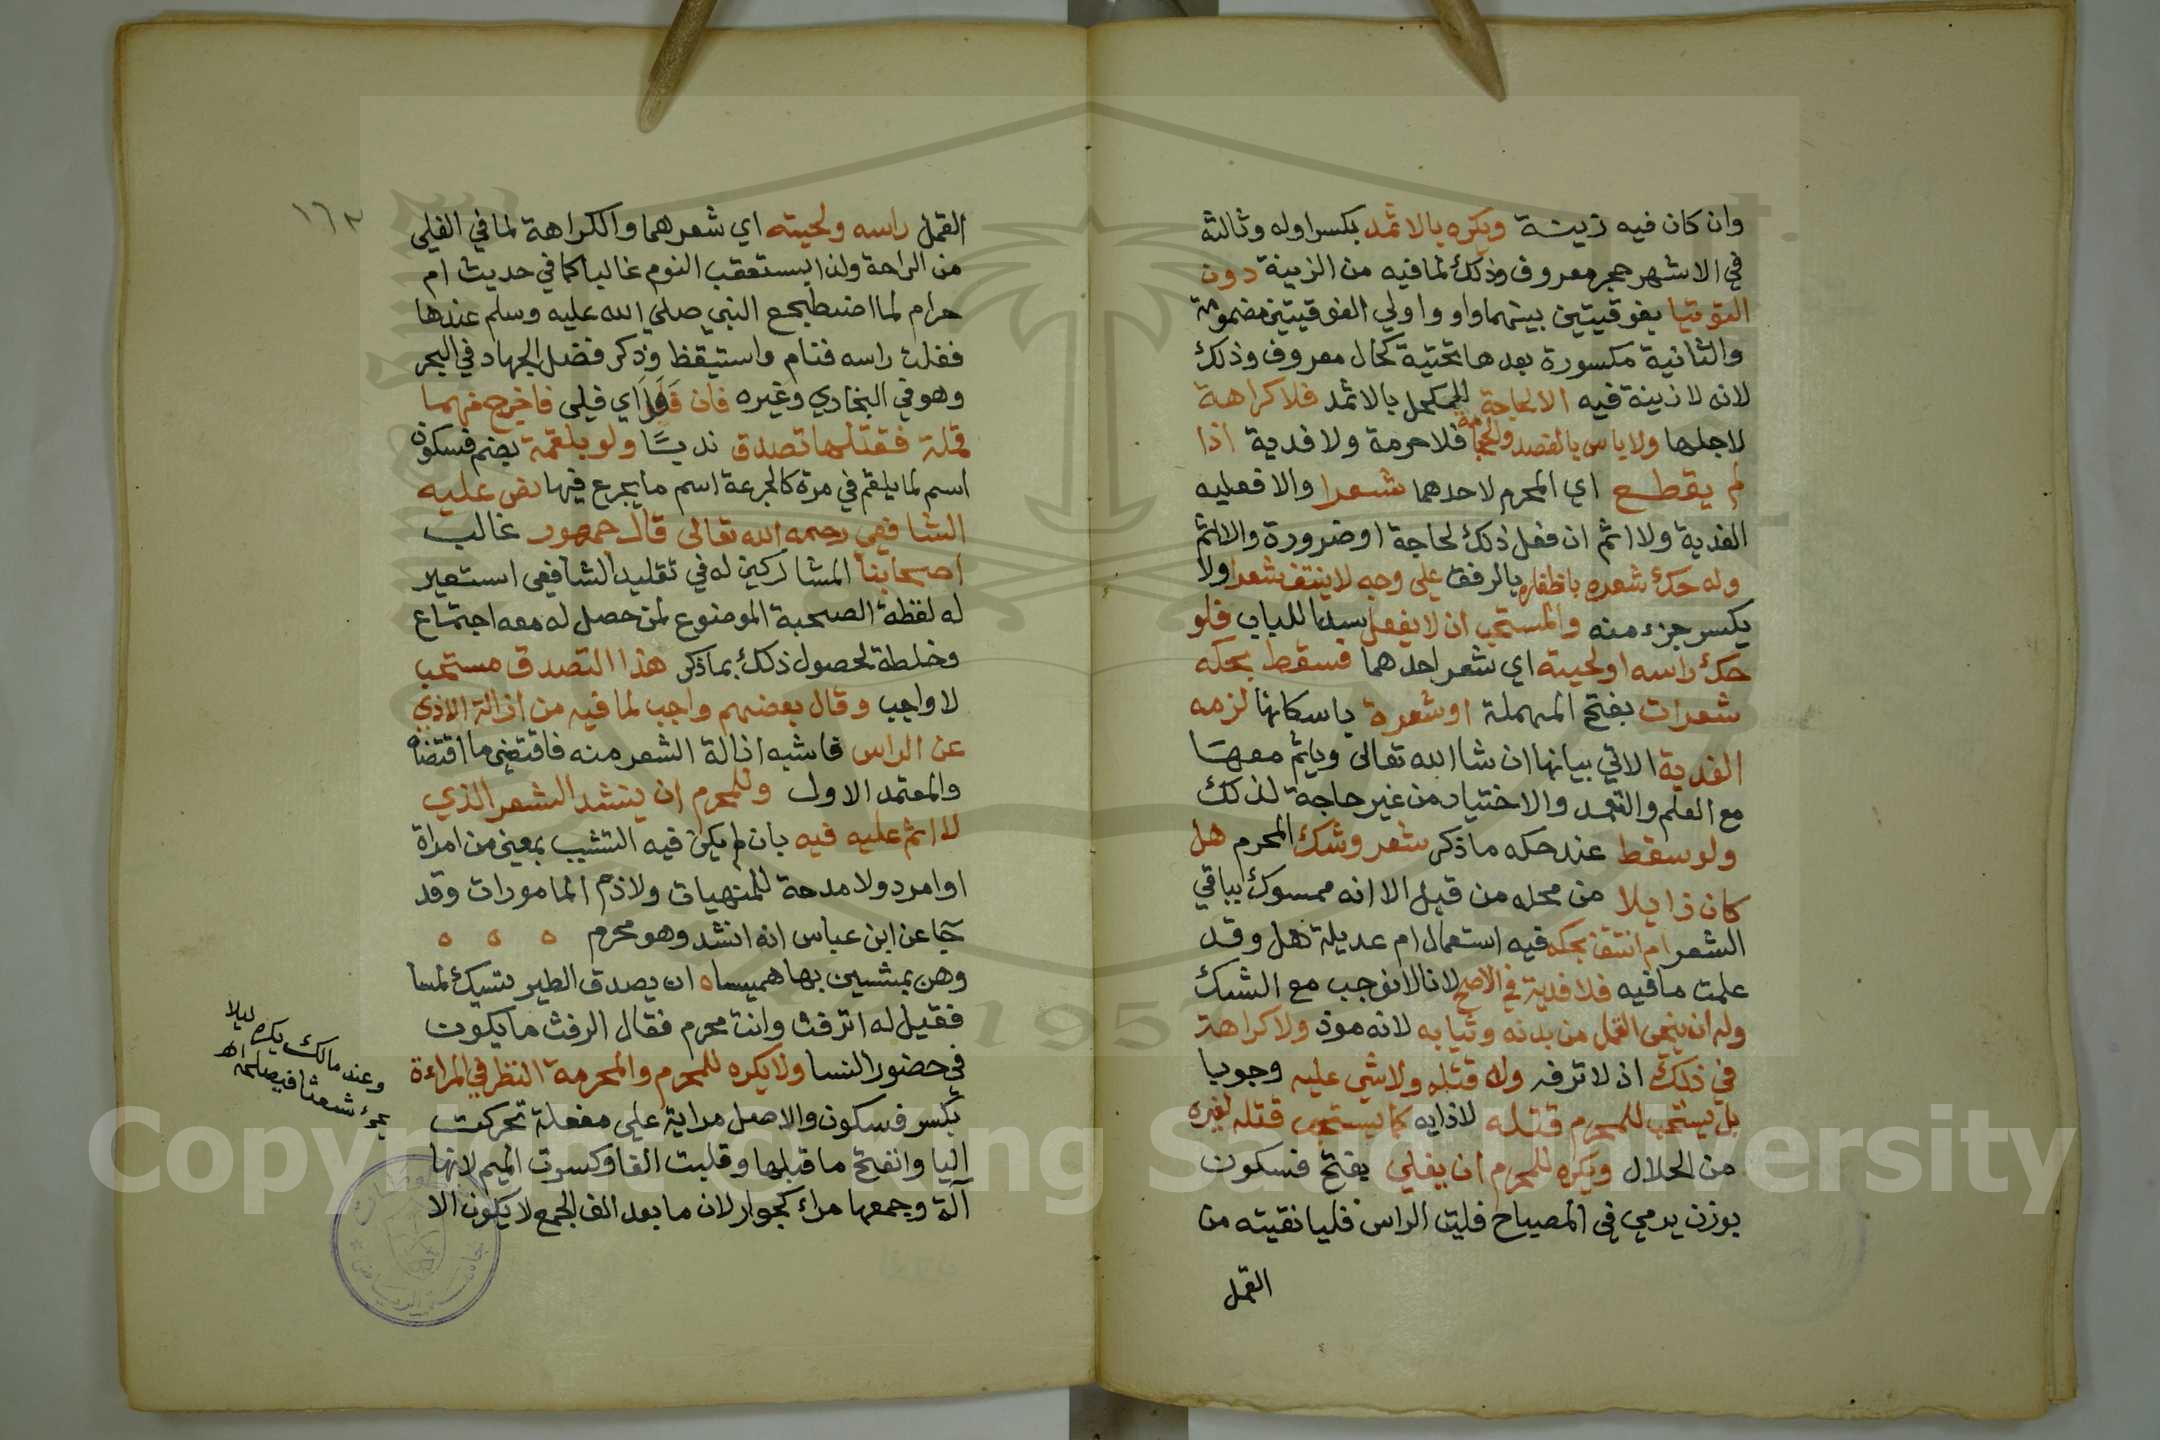 وان كان فيه زينة ويكره بالاثمد بكسر اوله وثالثه
في الاشهر حجر معروف وذلك لما فيه من الزينة دون
التوتيا بفوقيتين بينهما واو واولي الفوقيتين مضمومة
والثانية مكسورة بعدها تحتية كحال معروف وذلك
لانه لا زينة فيه الا لحاجة للمكحل بالاثمد فلا كراهة
لاجلها ولا باس بالفصد والحجامة فلا حرمة ولا فدية اذا
لم يقطع اي المحرم لاحدهما شعرا والا فعليه
الفدية ولا اثم ان فعل ذلك لحاجة او ضرورة والا اثم
وله حك شعره باظفاره بالرفق علي وجه لا ينتف شعرا ولا
يكسر جزء منه والمستحب ان لا يفعل سدا للباب فلو
حك راسه او لحيته اي شعر احدهما فسقط بحكه
شعرات بفتح المهملة او شعرة باسكانها لزمه
الفدية الاتي بيانها ان شا الله تعالى وياثم معها
مع العلم والتعمد والاختيار من غير حاجة لذلك
ولو سقط عند حكه ما ذكر شعر وشك المحرم هل
كان زايلا من محله من قبل الا انه ممسوك بباقي
الشعر ام انتتف بحكه فيه استعمال ام عديلة هل وقد
علمت ما فيه فلا فدية في الاصح لانا لا نوجب مع الشك
وله ان ينحي القمل من بدنه وثيابه لانه موذ ولا كراهة
في ذلك اذ لا ترفه وله قتله ولا شي عليه وجوبا
بل يستحب للمحرم قتله لاذايه كما يستحب قتله لغيره
من الحلال ويكره للمحرم ان يفلي بفتح فسكون
بوزن يرمي في المصباح فليت الراس فليا نقيته من
القمل
١٦٣
القمل راسه ولحيته اي شعرهما والكراهة لما في الفلي
من الراحة ولذا يستعقب النوم غالبا كما في حديث ام
حرام لما اضطجع النبي صلي الله عليه وسلم عندها
ففلت راسه فنام واستيقظ وذكر فضل الجهاد في البحر
وهو في البخاري وغيره فان فلا اي فيلى فاخرج منهما
قملة فقتلها تصدق ندبا ولو بلقمة بضم فسكون
اسم لما يلقم في مرة كالجرعة اسم ما يجرع فيها نص عليه
الشافعي رحمه الله تعالى قال جمهور غالب
اصحابنا المشاركين له في تقليد الشافعي استعير
له لفظة الصحبة الموضوع لمن حصل له معه اجتماع
وخلطة لحصول ذلك بما ذكر هذا التصدق مستحب
لا واجب وقال بعضهم واجب لما فيه من ازالة الاذي
عن الراس فاشبه ازالة الشعر منه فاقتضى ما اقتضاه
والمعتمد الاول وللمحرم ان ينشد الشعر الذي
لا اثم عليه فيه بان لم يكن فيه التشبيب بمعين من امراة
او امرد ولا مدحة للمنهيات ولا ذم المامورات وقد
جا عن ابن عباس انه انشد وهو محرم
وهن يمشين بها هميسا ه ان يصدق الطير
فقيل له اترفث وانت محرم فقال الرفث ما يكون
في حضور النسا ولا يكره للمحرم والمحرمة النظر في المراءة
بكسر فسكون والاصل مراية علي مفعلة تحركت
اليا وانفتح ما قبلها وقلبت الفا وكسرت الميم لانها
آلة وجمعها مراء كجوار لان ما بعد الف الجمع لا يكون الا
وعند مالك يكره ليلا
يرى شعثا فيصلحه اهـ
1957
Copyright © King Saud University